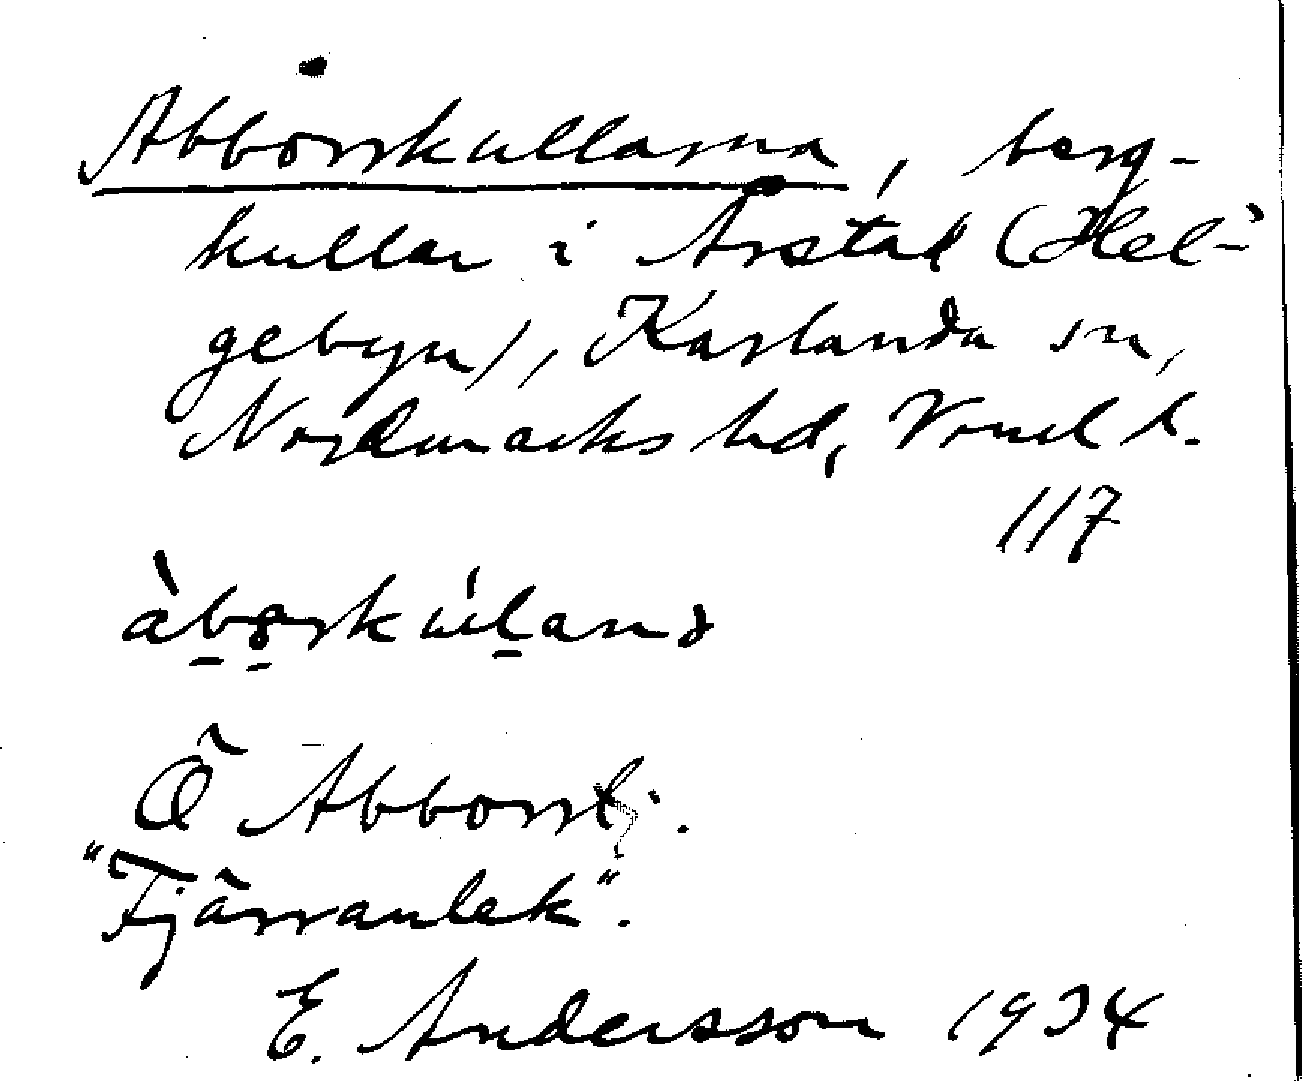 Abborrkullarna, berg-
kullar i Årstad (Hel-
gebyn), Karlanda sn,
Nordmarks hd, Vrml l.
117
àbo̱rkúḻarnə
Ö Abborrtj.
"Fjärranlek".
E. Andersson 1934